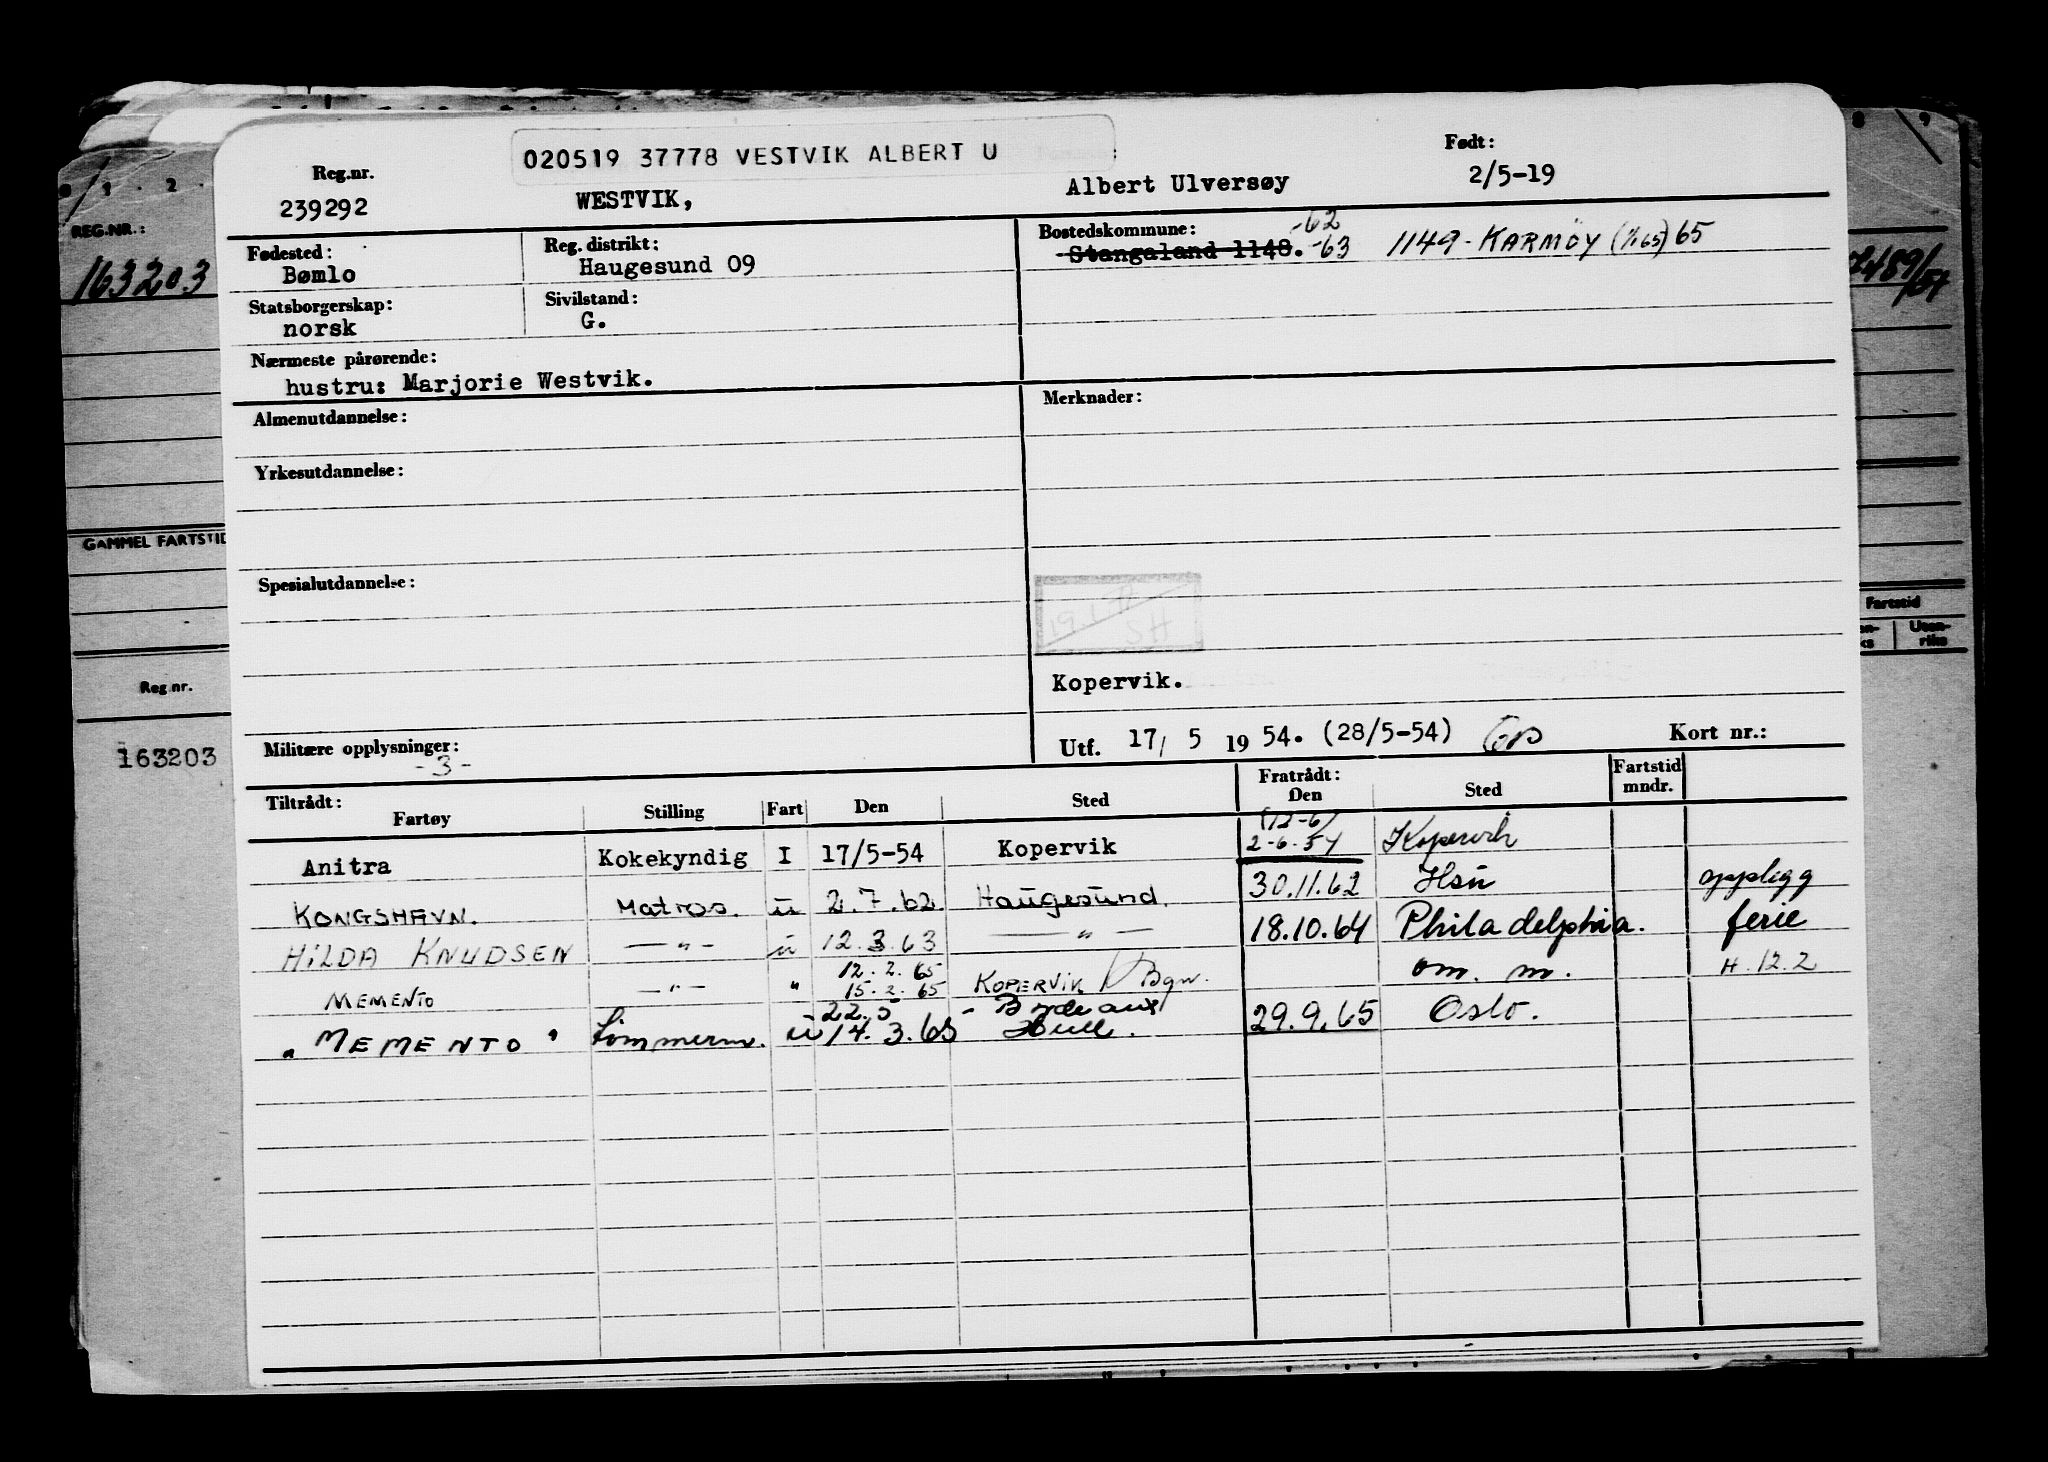 020519 37778 VESTVIK ALBERT U
Født:
Reg.nr.
239292
WESTVIK,
Albert Ulversøy
2/5-19
Fødested:
Bømlo
Reg. distrikt:
Haugesund 09
Bostedskommune:
-62
Stangaland 1148. -63
1149 - KARMØY (1/1 65) 65
Statsborgerskap:
norsk
Sivilstand:
G.
Nærmeste pårørende:
hustru: Marjorie Westvik.
Almenutdannelse:
Merknader:
Yrkesutdannelse:
Spesialutdannelse:
Kopervik.
Militære opplysninger:
-3-
Utf. 17/ 5 19 54. (28/5-54)
Kort nr.:
Tiltrådt:
Fartøy
Stilling
Fart
Den
Sted
Fratrådt:
Den
Sted
Fartstid
mndr.
Anitra Kokekyndig I 17/5-54 Kopervik (12-6) 2-6-54 Kopervik
KONGSHAVN. Matros. u 2.7.62 Haugesund. 30.11.62 Hsu opplegg
HILDA KNUDSEN — " — u 12.3.63 — " — 18.10.64 Philadelphia. ferie
MEMENTO — " — " 12.2.65 15.2.65 KOPERVIK / Bgn. om. m. H.12.2
22.5 - Bordeaux
"MEMENTO" Tømmerm. u 14.3.65 Hull. 29.9.65 Oslo.
REG.NR.:
163203
GAMMEL FARTSTID
Reg nr.
163203
Fartstid
Uten-
riks